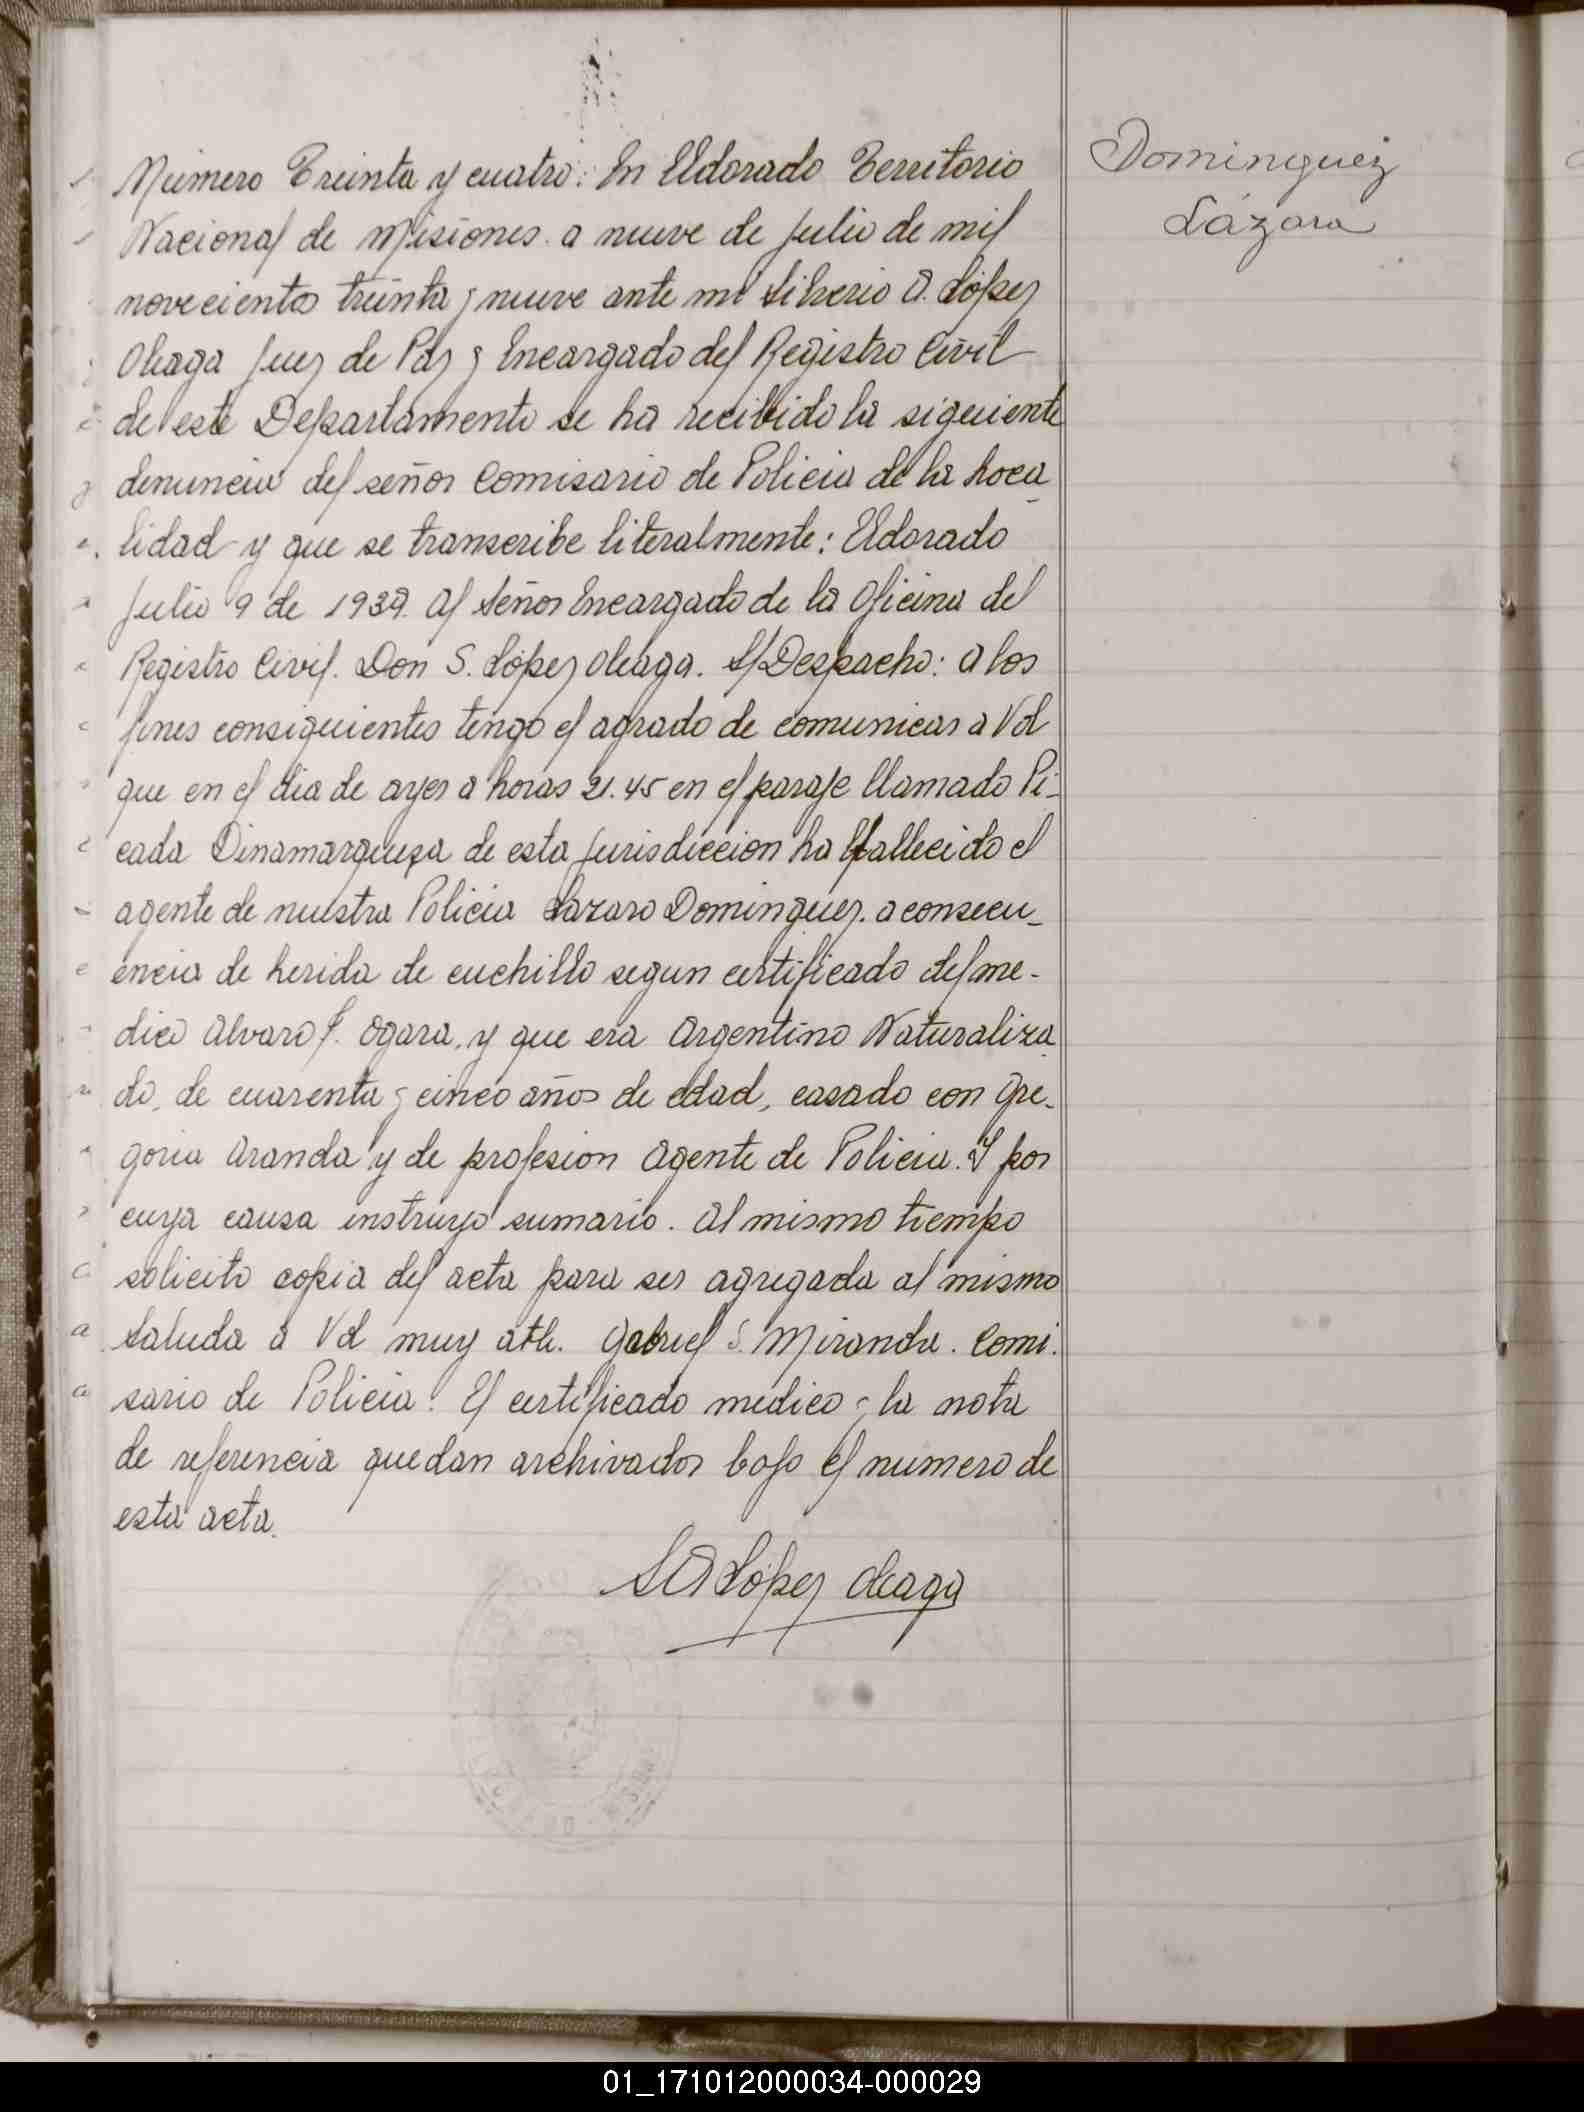 Número Treinta y cuatro: En Eldorado Territorio
Nacional de Misiones a nueve de Julio de mil
novecientos treinta y nueve ante mi Silverio A. López
Oleaga Juez de Paz y Encargado del Registro Civil
de este Departamento se ha recibido la siguiente
denuncia del señor Comisario de Policia de la Loca
lidad y que se transcribe literalmente: Eldorado
Julio 9 de 1939. Al Señor Encargado de la Oficina del
Registro Civil. Don S. López Oleaga. S/Despacho: A los
fines consiguientes tengo el agrado de comunicar a Vd
que en el dia de ayer a horas 21.45 en el paraje llamado Pi-
cada Dinamarqueza de esta Jurisdiccion ha fallecido el
agente de nuestra Policia Lazaro Dominguez. a consecu-
encia de herida de cuchillo segun certificado del me-
dico Alvaro Ogara, y que era Argentino Naturaliza
do, de cuarenta y cinco años de edad, casado con Gre-
goria Aranda y de profesion Agente de Policia. Y por
cuya causa instruyo sumario. Al mismo tiempo
solicito copia del acta para ser agregada al mismo
Saluda a Vd muy atte. Gabriel S. Miranda. Comi-
sario de Policia. El certificado medico y la nota
de referencia quedan archivados bajo el numero de
esta acta.
S A López Oleaga
Dominguez
Lázaro
01_171012000034-000029